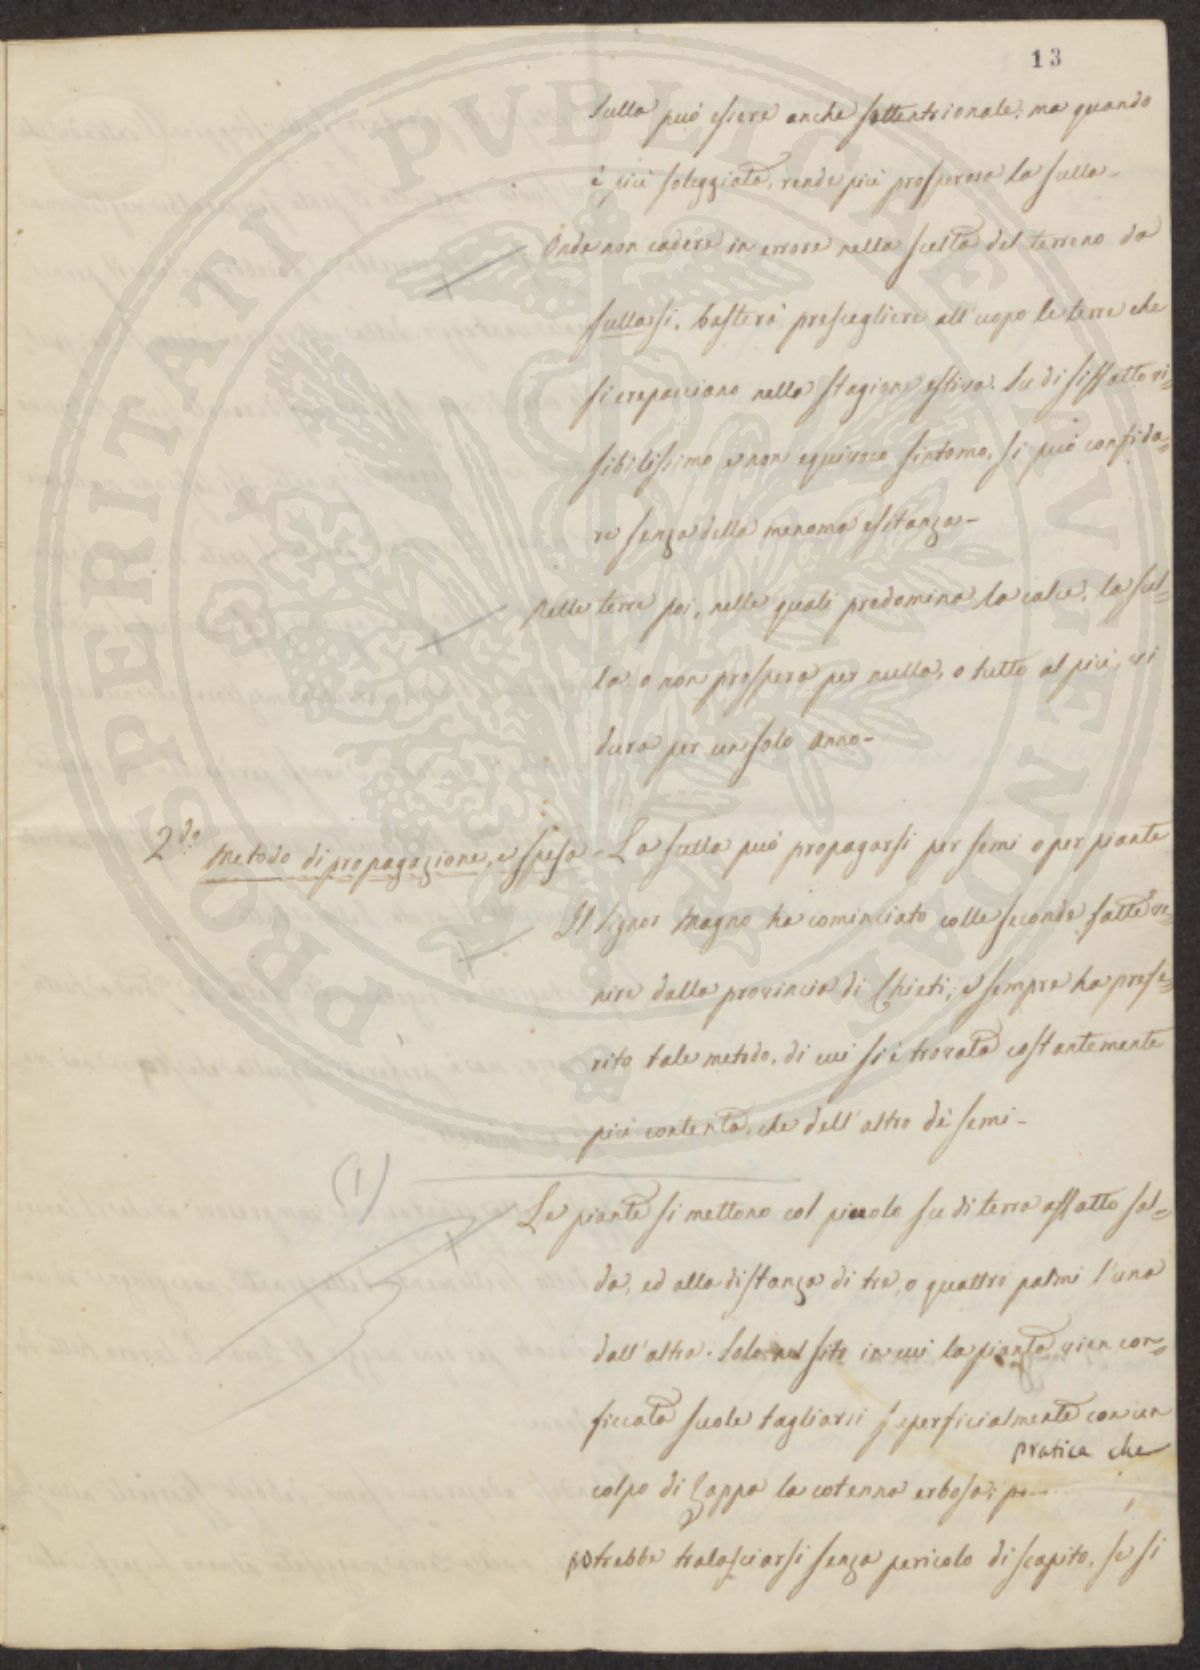 13
PROSPERITATI PVBLICAE AVGENDAE
sulla può essere anche settentrionale: ma quando
è più soleggiata, rende più prosperosa la sulla-
Onde non cadere in errore nella scelta del terreno da
sullarsi, basterà prescegliere all'uopo le terre che
si crepacciano nella stagione estiva. Su di siffatto vi=
sibilissimo e non equivoco sintomo, si può confida=
re senza della menoma esitanza-
Nelle terre poi, nelle quali predomina la calce, la sul=
la, o non prospera per nulla, o tutto al più, vi
dura per un solo anno-
2do Metodo di propagazione, e spesa - La sulla può propagarsi per semi o per piante
Il Signor Magno ha cominciato colle seconde fatte ve=
nire dalla provincia di Chieti; e sempre ha prefe=
rito tale metodo, di cui si è trovato costantemente
più contento, che dell'altro de' semi-
(1)
Le piante si mettono col piuolo su di terra affatto sal=
da, ed alla distanza di tre, o quattro palmi l'una
dall'altra. Solo nel sito in cui la pianta vien con=
ficcata suole tagliarsi superficialmente con un
pratica che
colpo di zappa la cotenna erbosa;
potrebbe tralasciarsi senza pericolo di scapito, se si